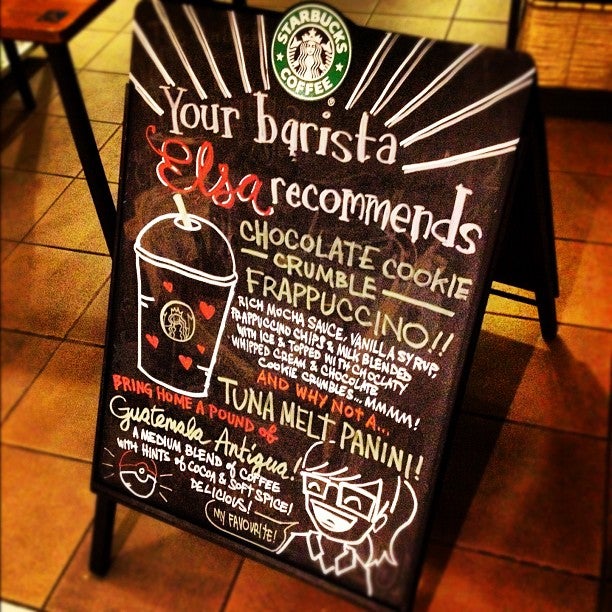 STARBUCKS
COFFEE
Your barista
Elsa recommends
CHOCOLATE COOKIE
CRUMBLE
FRAPPUCCINO!!
RICH MOCHA SAUCE, VANILLA SYRUP,
FRAPPUCCINO CHIPS & MILK BLENDED
WITH ICE & TOPPED WITH CHOCLATY
WHIPPED CREAM & CHOCOLATE
COOKIE CRUMBLES... MMMM!
AND WHY NOT A...
TUNA MELT PANINI!
BRING HOME A POUND OF
Guatemala Antigua!
A MEDIUM BLEND OF COFFEE
WITH HINTS OF COCOA & SOFT SPICE!
DELICIOUS!
MY FAVOURITE!